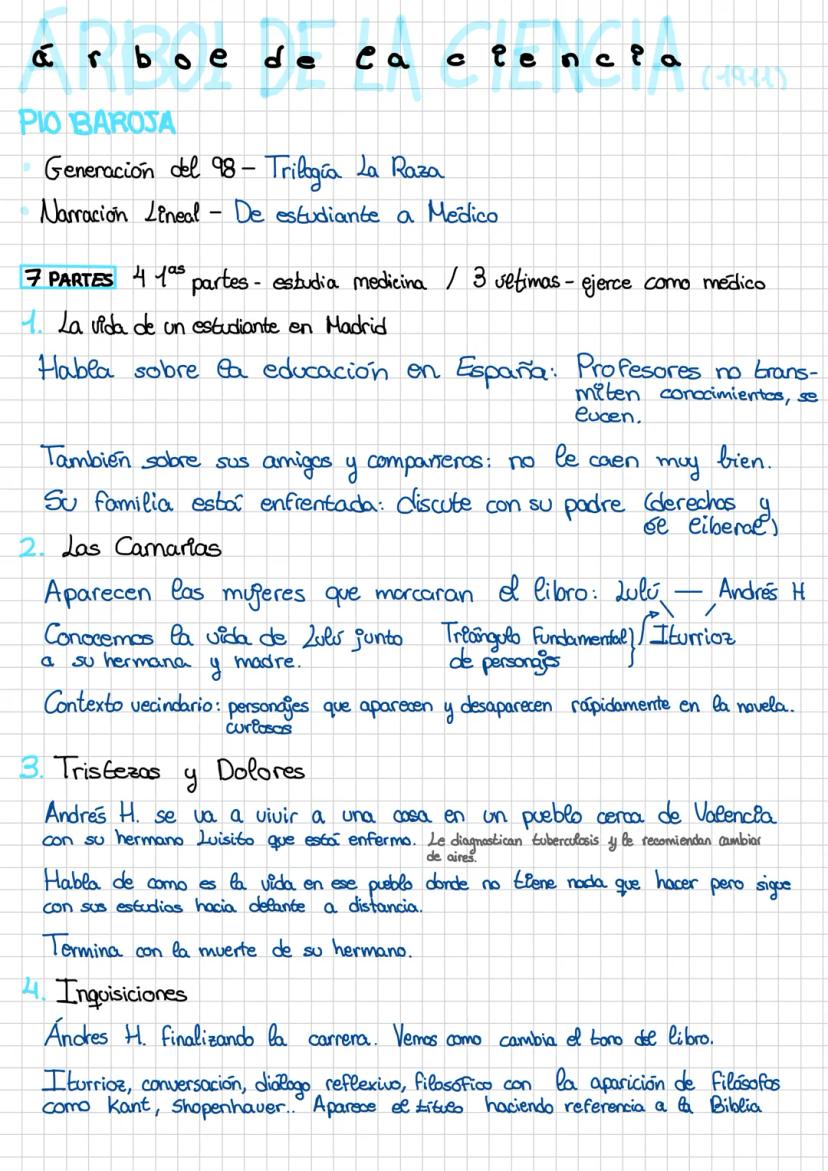 ÁRBOL DE LA CIENCIA (1911)
árbol de la ciencia
PIO BAROJA
Generación del 98 - Trilogía La Raza
Narración Lineal - De estudiante a Médico
7 PARTES 4 1as partes - estudia medicina / 3 últimas - ejerce como médico
1. La vida de un estudiante en Madrid
Habla sobre la educación en España: Profesores no trans-
miten conocimientos, se
lucen.
También sobre sus amigos y compañeros: no le caen muy bien.
Su familia está enfrentada: discute con su padre (derechos y
él liberal)
2. Las Camarias
Aparecen las mujeres que marcaran el libro: Lulú — Andrés H
Conocemos la vida de Lulú junto
a su hermana y madre.
Triángulo Fundamental } Iturrioz
de personajes
Contexto vecindario: personajes que aparecen y desaparecen rápidamente en la novela.
curiosos
3. Tristezas y Dolores
Andrés H. se va a vivir a una casa en un pueblo cerca de Valencia
con su hermano Luisito que está enfermo. Le diagnostican tuberculosis y le recomiendan cambiar
de aires.
Habla de como es la vida en ese pueblo donde no tiene nada que hacer pero sigue
con sus estudios hacia delante a distancia.
Termina con la muerte de su hermano.
4. Inquisiciones
Ándres H. finalizando la carrera. Vemos como cambia el tono del libro.
Iturrioz, conversación, diálogo reflexivo, filosófico con la aparición de filósofos
como Kant, Shopenhauer.. Aparece el título haciendo referencia a la Biblia